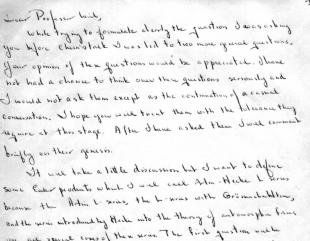 Dear Professor Weil,
While trying to formulate clearly the question I was asking
you before Chern's talk I was led to two more general questions.
Your opinion of these questions would be appreciated. I have
not had a chance to think over these questions seriously and
I would not ask them except as the continuation of a casual
conversation. I hope you will treat them with the tolerance they
require at this stage. After I have asked them I will comment
briefly on their genesis.
It will take a little discussion but I want to define
some Euler products which I will call Artin-Hecke L-series
because the Artin L-series, the L-series with Grössencharakteren,
and the series introduced by Hecke into the theory of automorphic forms
are all special cases of these series. The first question will